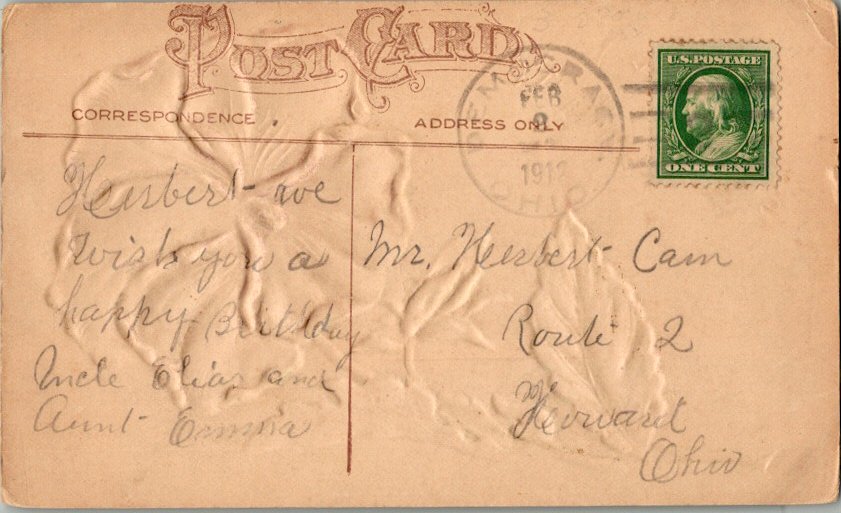 POST CARD
CORRESPONDENCE
ADDRESS ONLY
FEB
9
OHIO
U.S. POSTAGE
ONE CENT
Herbert we
Wish you a
happy Birthday
Uncle Elias and
Aunt Emma
Mr. Herbert Cain
Route 2
Howard
Ohio